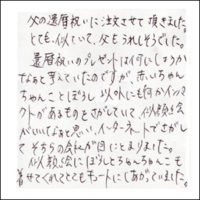 父の還暦祝いに注文させて頂きました。
とても、似ていて、父もうれしそうでした。
還暦祝いのプレゼントは何にしようか
なぁと考えていたのですが、赤いちゃん
ちゃんことぼうし以外にも何かインパ
クトがあるものをさがしていて、似顔絵
がいいなぁと思い、インターネットでさがし
てそちらの会社が目にとまりました。
似顔絵にぼうしとちゃんちゃんこも
着せてくれてとてもキュートにしあがていました。